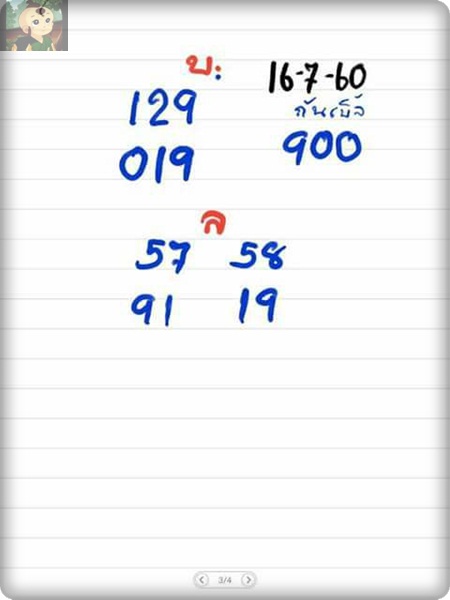 บ: 16-7-60
129 กันเบิ้ล
019 900
ล
57 58
91 19
3/4